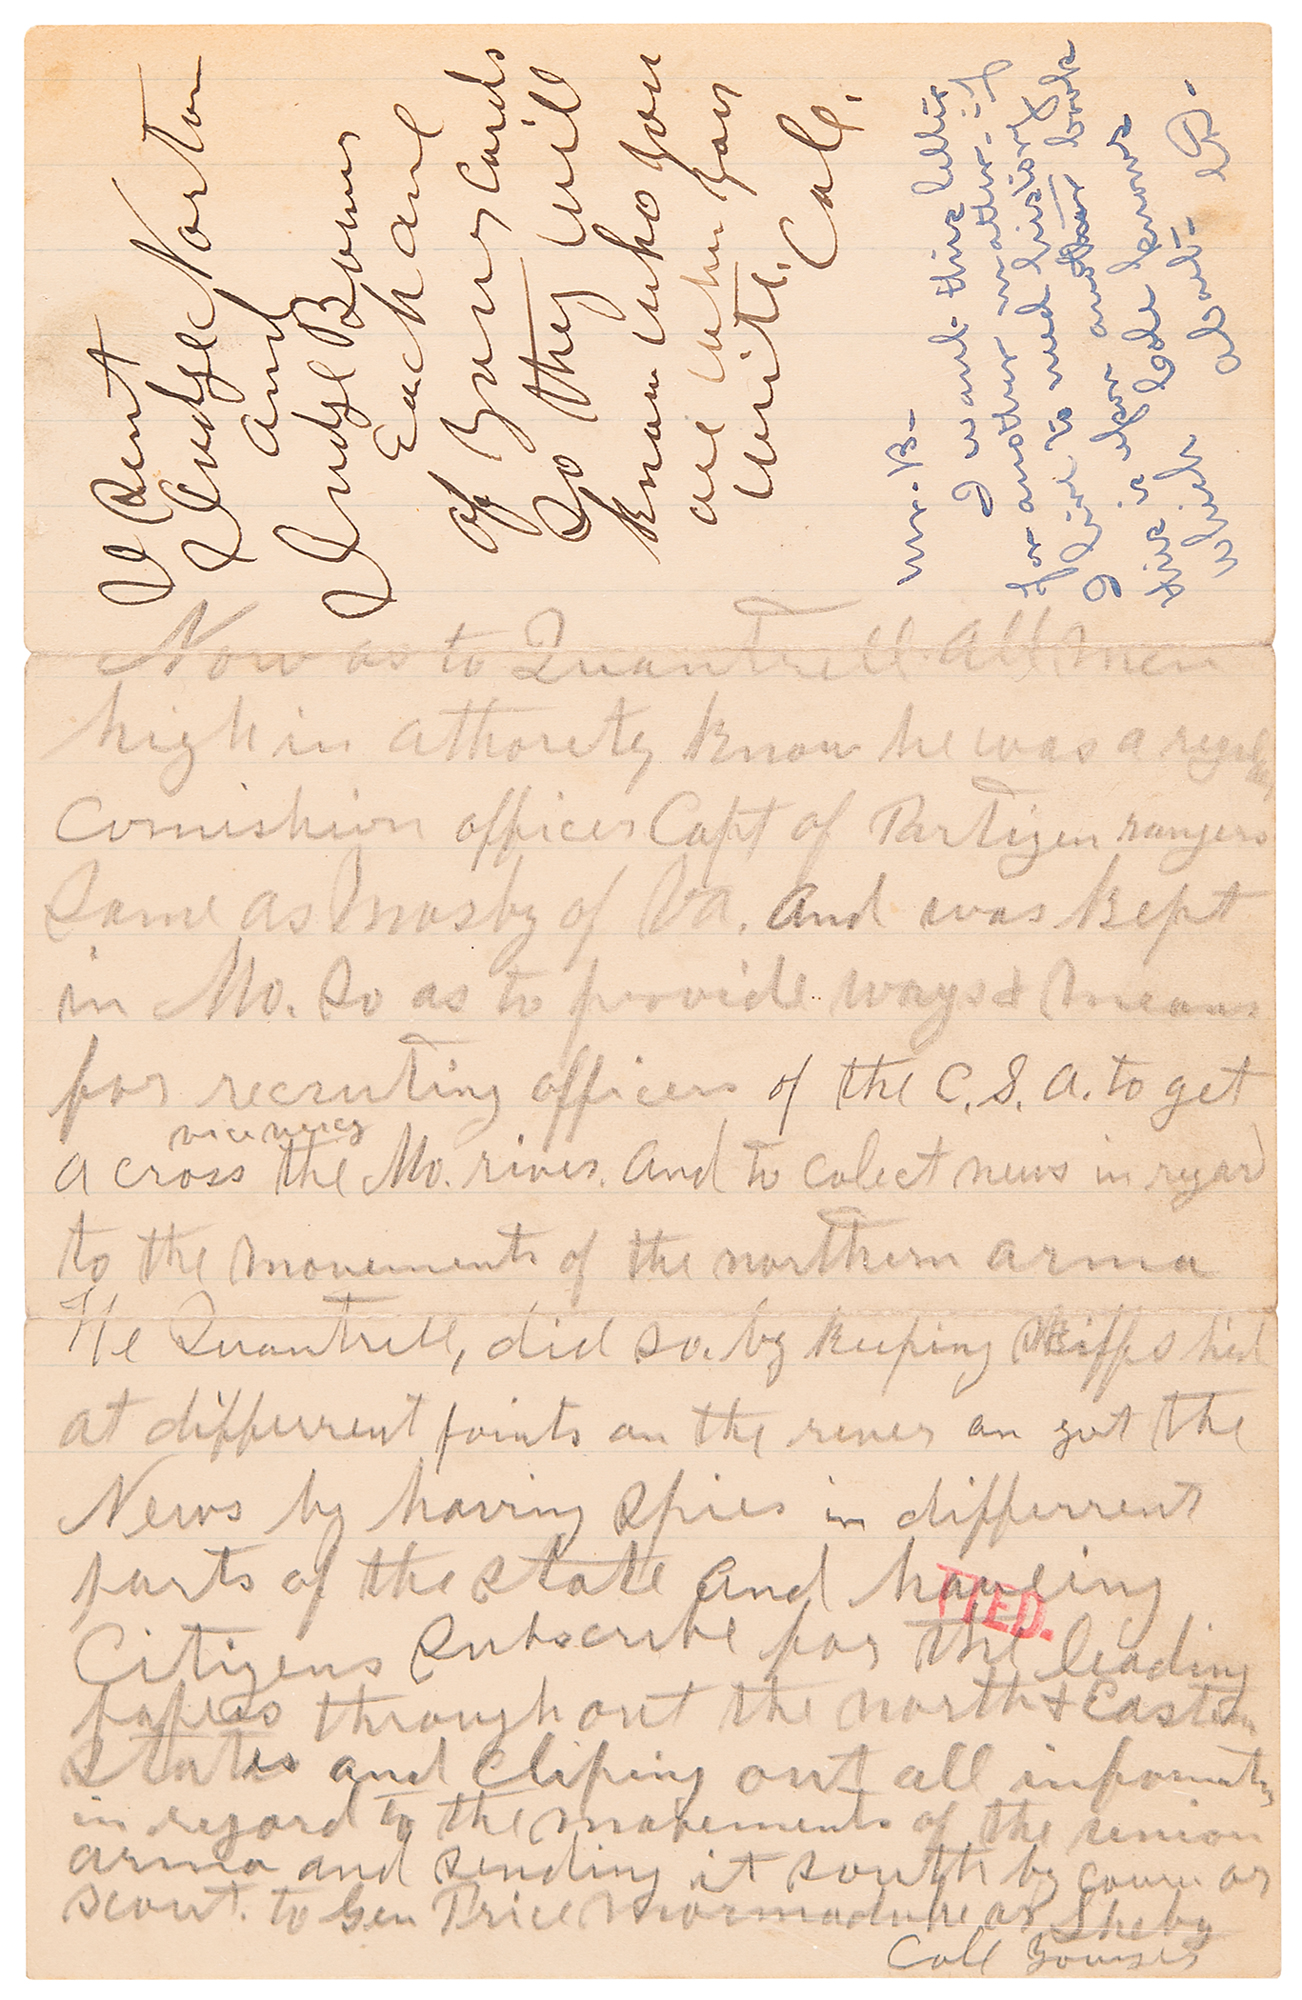 I Sent
Judge Norton
and
Judge Bowns
Each and
of yours cards
So they will
know who you
are when you
write.
Cole.
Mr. B-
I want this letter
for another matter - if
I live to need history
for another book
this is when Cole knows
which about - B.
Now as to Quantrell. All men
high in athorety know he was a regular
Comishion officer Capt of Partizen rangers
Same as Mosby of Va. and was kept
in Mo. So as to provide ways & means
for recruting officers of the C.S.A. to get
vicenery
across the Mo. river. and to colect news in regard
to the movements of the northern arma
He Quantrell, did so. by keeping Skiffs hid
at differrent points on the river an got the
News by having Spies in differrent
parts of the State and haveing
TTED.
Citizens Subscribe for the leading
papers throughout the north & Eastern
States and cliping out all informati
in regard to the movements of the union
arma and sending it south by couri or
scout. to Gen Price Mormaduke or Sheby
Cole Younger